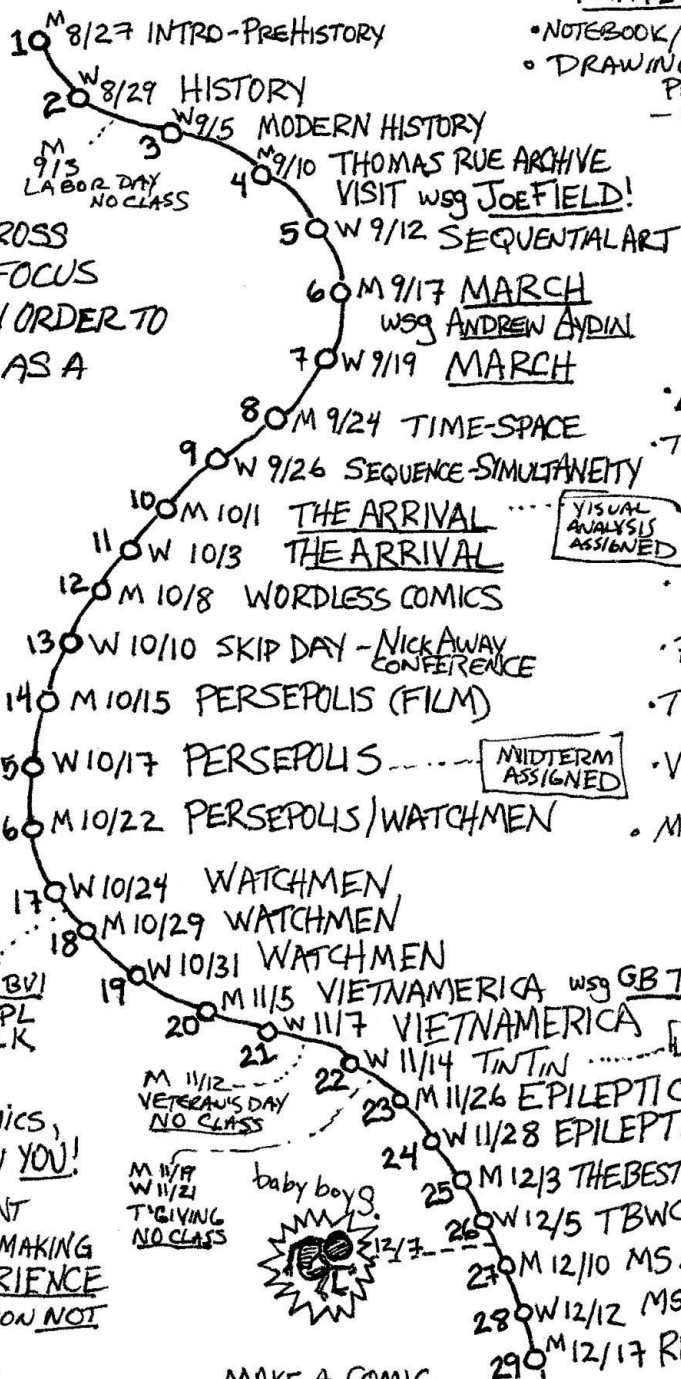 1 M 8/27 INTRO-PREHISTORY
• NOTEBOOK/
• DRAWING
2 W 8/29 HISTORY
M 9/3
LABOR DAY
NO CLASS
3 W 9/5 MODERN HISTORY
4 M 9/10 THOMAS RUE ARCHIVE
VISIT wsg JOE FIELD!
5 W 9/12 SEQUENTIAL ART
ROSS
FOCUS
ORDER TO
AS A
6 M 9/17 MARCH
wsg ANDREW AYDIN
7 W 9/19 MARCH
8 M 9/24 TIME-SPACE
9 W 9/26 SEQUENCE-SIMULTANEITY
10 M 10/1 THE ARRIVAL
VISUAL
ANALYSIS
ASSIGNED
11 W 10/3 THE ARRIVAL
12 M 10/8 WORDLESS COMICS
13 W 10/10 SKIP DAY - NICK AWAY
CONFERENCE
14 M 10/15 PERSEPOLIS (FILM)
5 W 10/17 PERSEPOLIS
MIDTERM
ASSIGNED
6 M 10/22 PERSEPOLIS/WATCHMEN
17 W 10/24 WATCHMEN
18 M 10/29 WATCHMEN
19 W 10/31 WATCHMEN
20 M 11/5 VIETNAMERICA wsg GB T
21 W 11/7 VIETNAMERICA
M 11/12
VETERAN'S DAY
NO CLASS
22 W 11/14 TINTIN
M 11/19
W 11/21
T'GIVING
NO CLASS
23 M 11/26 EPILEPTIC
24 W 11/28 EPILEPT
25 M 12/3 THE BEST
26 W 12/5 TBWC
baby boy S.
12/7
27 M 12/10 MS.
28 W 12/12 MS
29 M 12/17 R
BVI
PL
LK
MICS,
YOU!
NT
MAKING
RIENCE
ON NOT
MAKE A COMIC